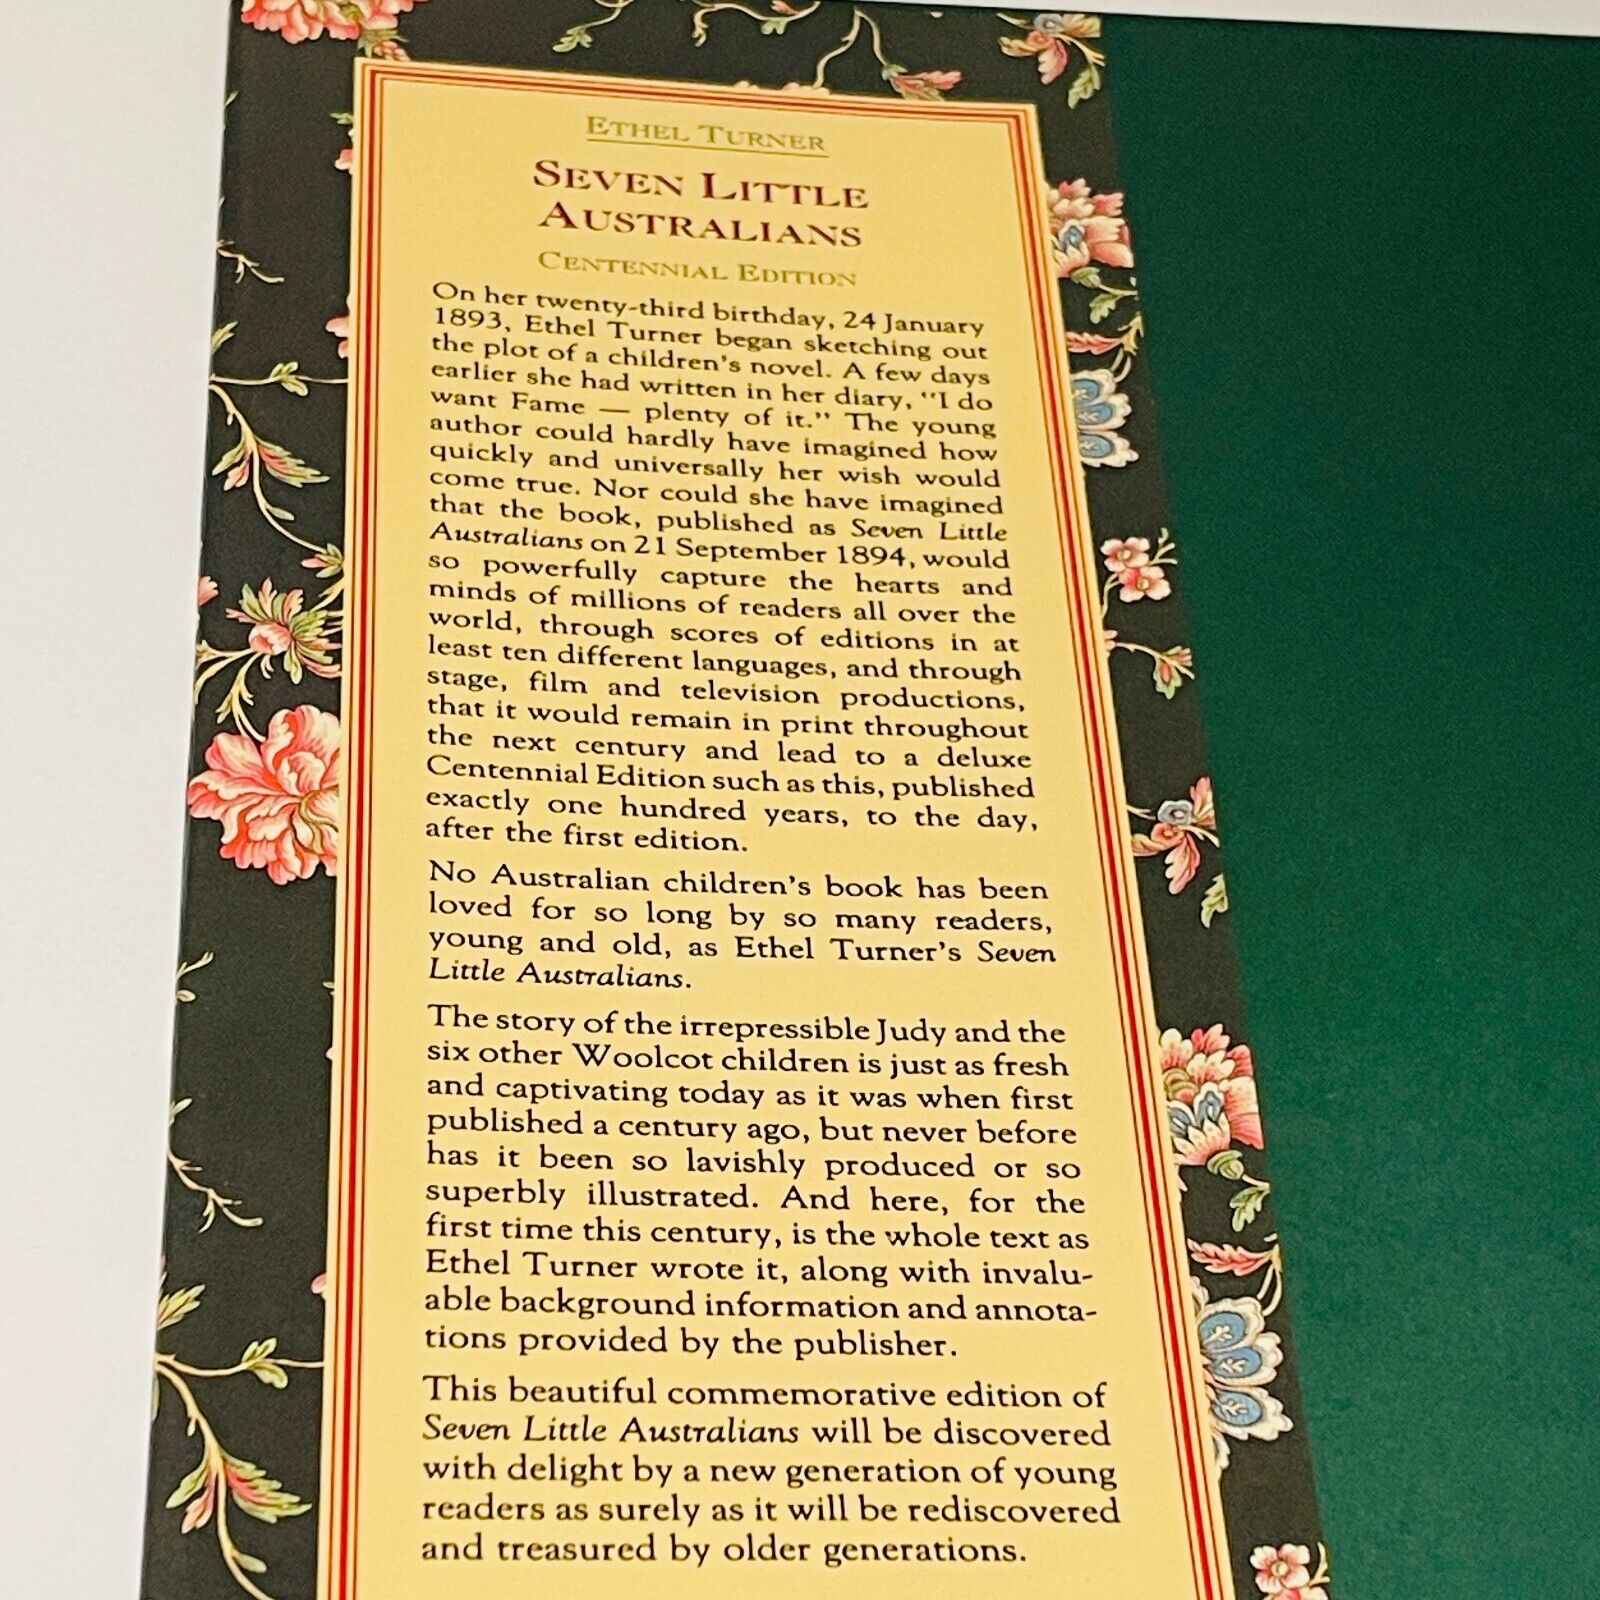 ETHEL TURNER
SEVEN LITTLE
AUSTRALIANS
CENTENNIAL EDITION
On her twenty-third birthday, 24 January
1893, Ethel Turner began sketching out
the plot of a children's novel. A few days
earlier she had written in her diary, "I do
want Fame — plenty of it." The young
author could hardly have imagined how
quickly and universally her wish would
come true. Nor could she have imagined
that the book, published as Seven Little
Australians on 21 September 1894, would
so powerfully capture the hearts and
minds of millions of readers all over the
world, through scores of editions in at
least ten different languages, and through
stage, film and television productions,
that it would remain in print throughout
the next century and lead to a deluxe
Centennial Edition such as this, published
exactly one hundred years, to the day,
after the first edition.
No Australian children's book has been
loved for so long by so many readers,
young and old, as Ethel Turner's Seven
Little Australians.
The story of the irrepressible Judy and the
six other Woolcot children is just as fresh
and captivating today as it was when first
published a century ago, but never before
has it been so lavishly produced or so
superbly illustrated. And here, for the
first time this century, is the whole text as
Ethel Turner wrote it, along with invalu-
able background information and annota-
tions provided by the publisher.
This beautiful commemorative edition of
Seven Little Australians will be discovered
with delight by a new generation of young
readers as surely as it will be rediscovered
and treasured by older generations.